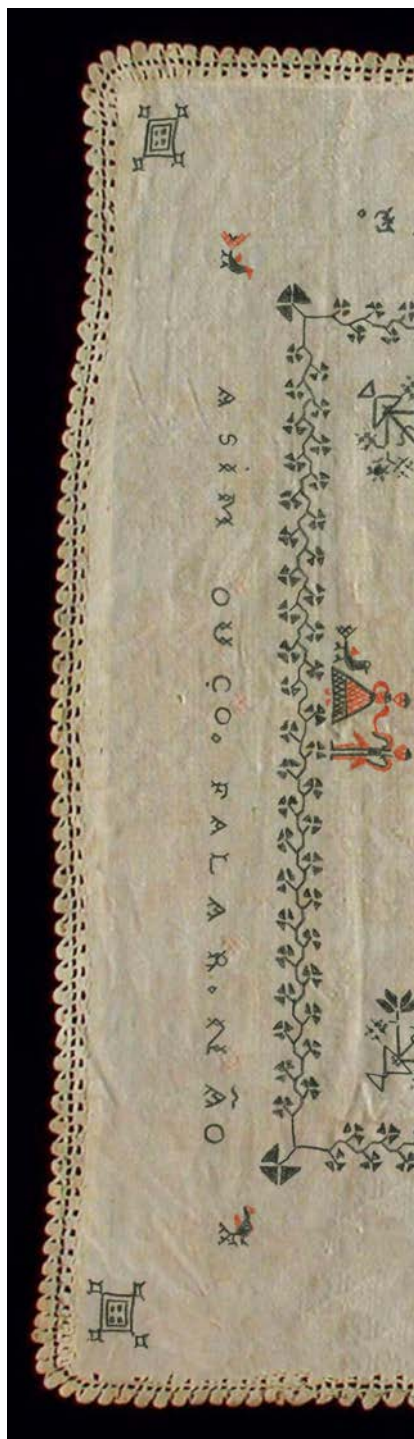 ASIM OUÇO. FALAR. NÃO